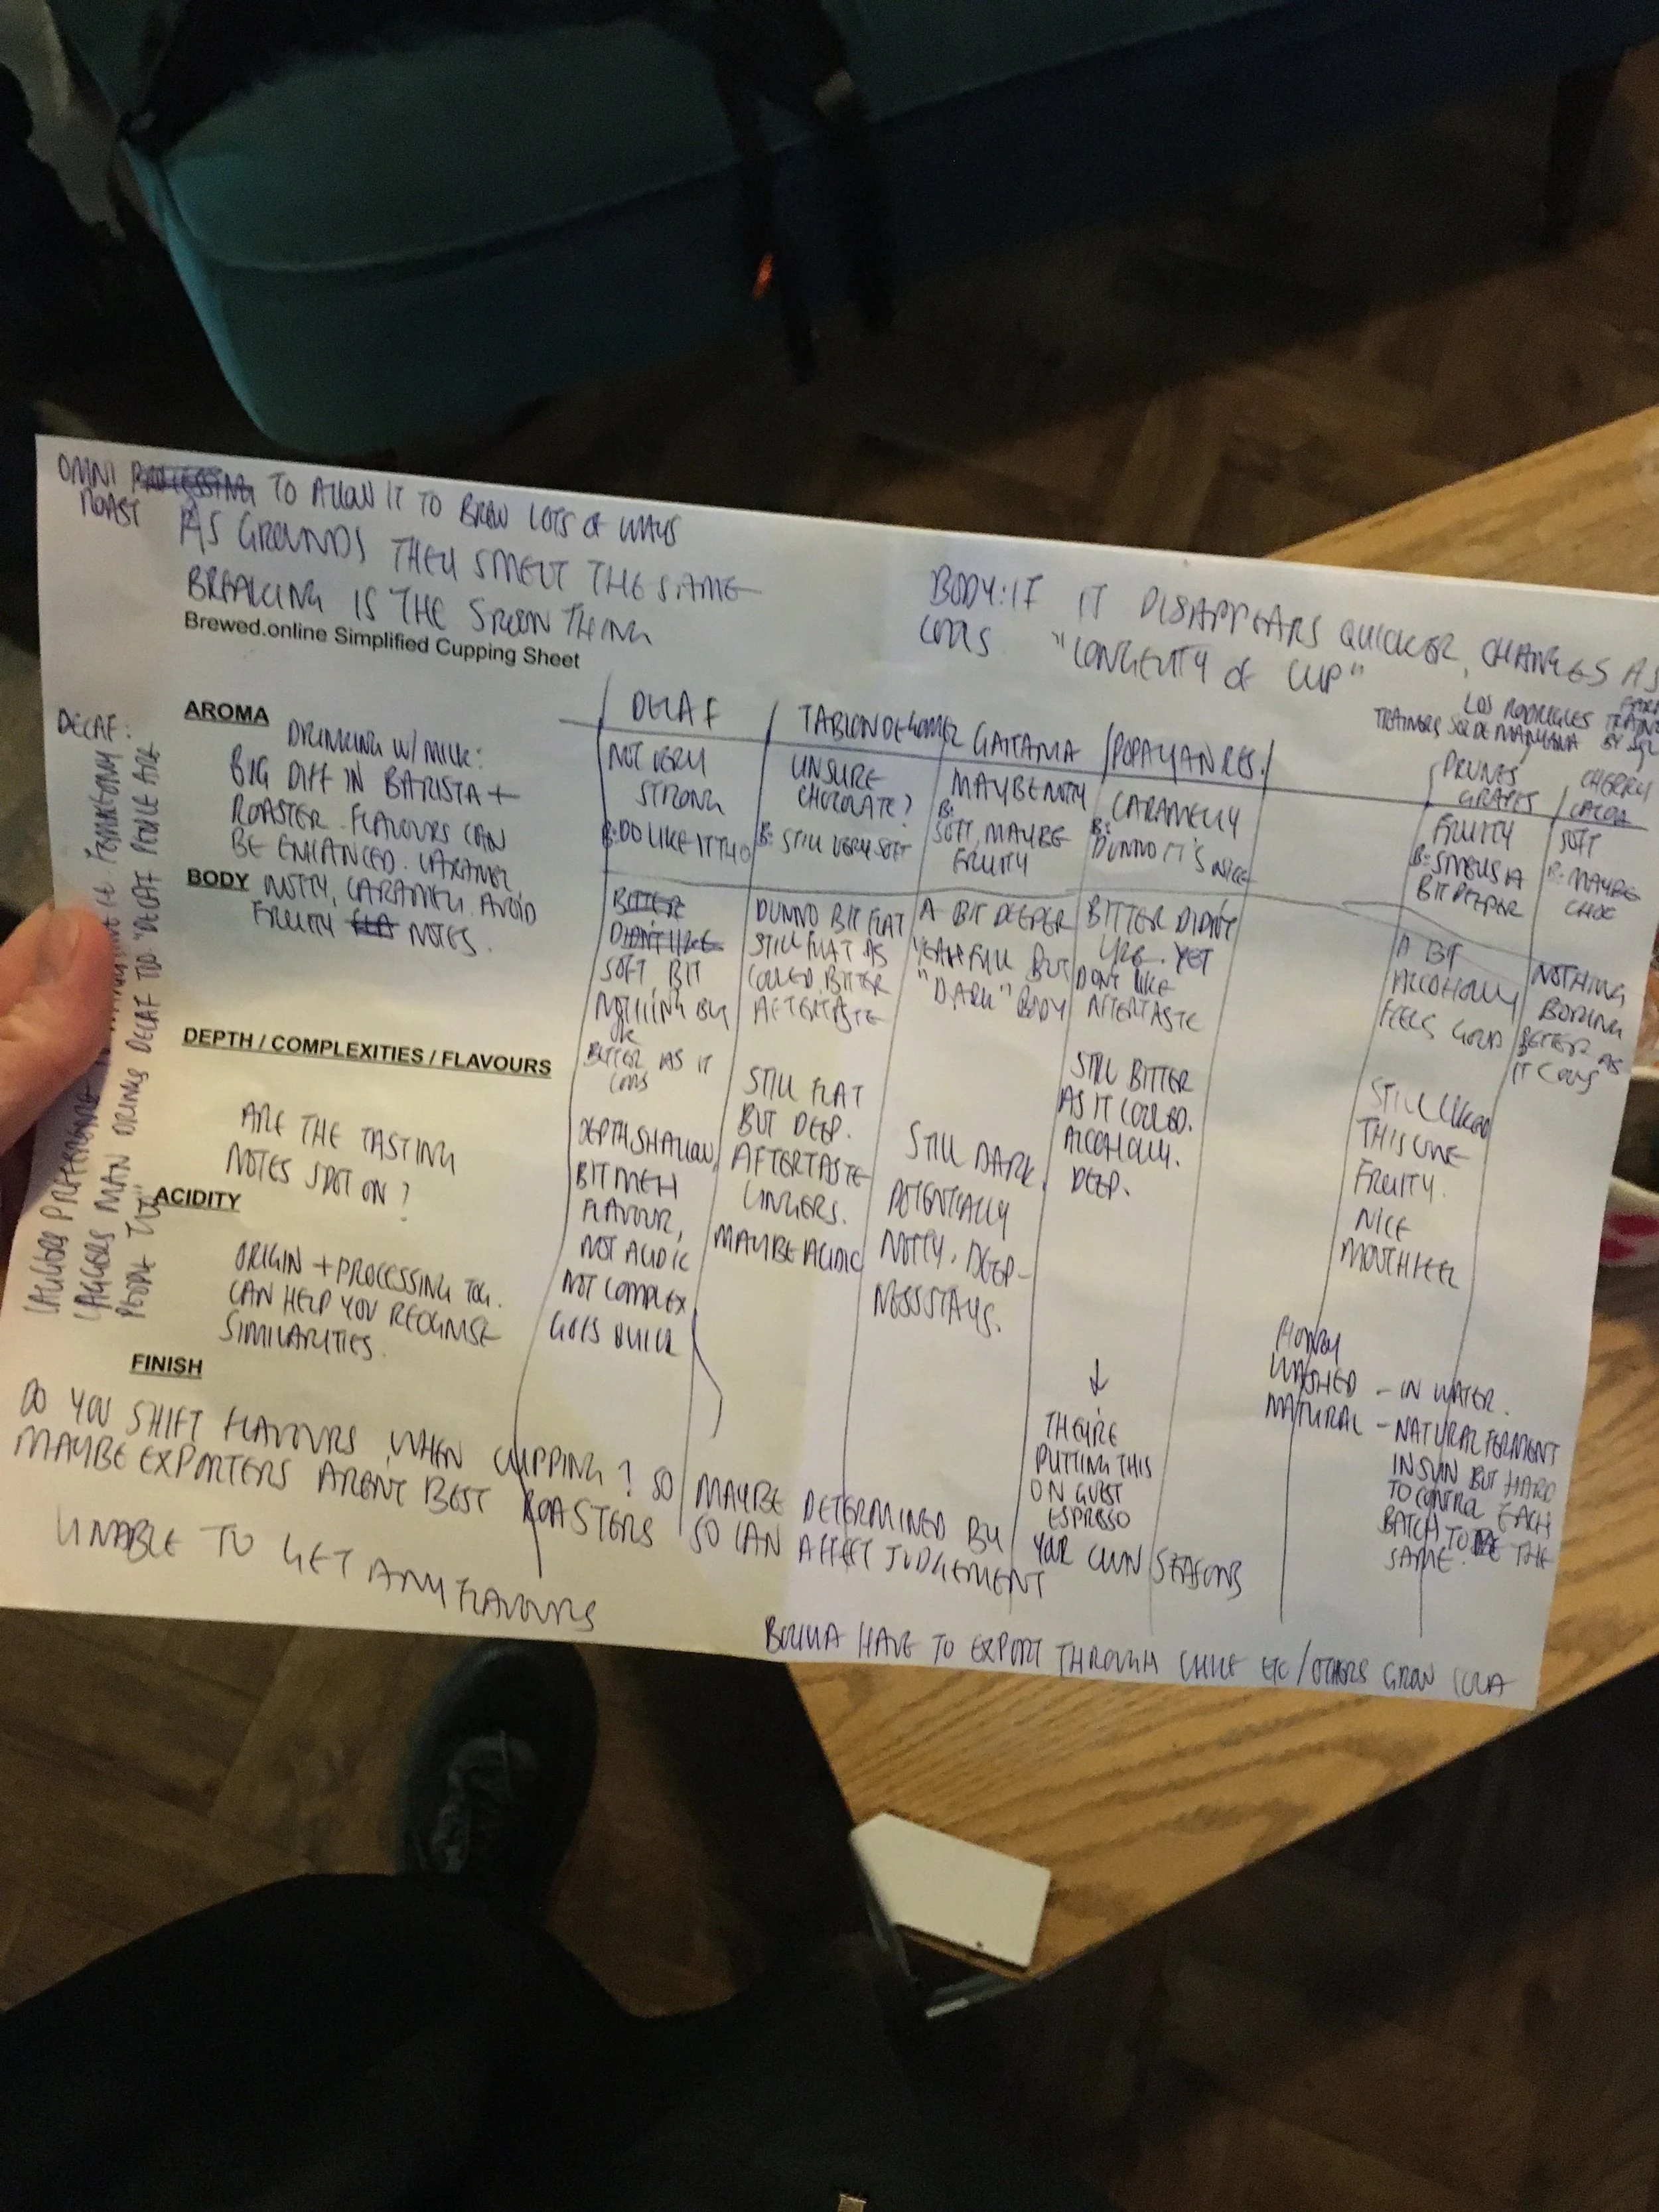 OMNI TO ALLOW IT TO BREW LOTS OF WAYS
ROAST
AS GROUNDS THEY SMELT THE SAME
BREAKING IS THE SPOON THING
Brewed.online Simplified Cupping Sheet
BODY: IF IT DISAPPEARS QUICKER, CHANGES AS
COOLS "LONGEVITY OF CUP"
LOS RODRIGUES
DECAF:
PEOPLE TOO"
AROMA
DRINKING W/ MILK:
BIG DIFF IN BARISTA +
ROASTER. FLAVOURS CAN
BE ENHANCED. CARAMEL,
BODY NUTTY, CARAMEL. AVOID
FRUITY NOTES.
DEPTH / COMPLEXITIES / FLAVOURS
ARE THE TASTING
NOTES SPOT ON?
ACIDITY
ORIGIN + PROCESSING TOG.
CAN HELP YOU RECOGNISE
SIMILARITIES.
FINISH
DECAF
NOT VERY
STRONG
B: DO LIKE IT THO
BITTER
DIDN'T LIKE
SOFT, BIT
NOTHING BUT
OK
BITTER AS IT
COOLS
DEPTH SHALLOW,
BIT MEH
FLAVOUR,
NOT ACIDIC
NOT COMPLEX
GOES QUICK
TABLON DE GOMEZ
UNSURE
CHOCOLATE?
B: STILL VERY SOFT
DUNNO BIT FLAT
STILL FLAT AS
COOLED. BITTER
AFTERTASTE
STILL FLAT
BUT DEEP.
AFTERTASTE
LINGERS.
MAYBE ACIDIC
GAITANIA
MAYBE NUTTY
B:
SOFT, MAYBE
FRUITY
A BIT DEEPER
YEAH FULL BUT
"DARK" BODY
STILL DARK,
POTENTIALLY
NUTTY, DEEP-
NESS STAYS.
POPAYAN RES.
CARAMELLY
B:
DUNNO IT'S NICE
BITTER DIDN'T
LIKE. YET
DON'T LIKE
AFTERTASTE
STILL BITTER
AS IT COOLED.
ALCOHOLLY.
DEEP.
THEY'RE
PUTTING THIS
ON GUEST
ESPRESSO
PRUNES
GRAPES
FRUITY
B: SMELLS A
BIT DEEPER
A BIT
ALCOHOLLY
FEELS GOOD
STILL LIKED
THIS ONE
FRUITY.
NICE
MOUTHFEEL
CHERRY
CACOA
SOFT
B: MAYBE
CHOC
NOTHING,
BORING
BETTER AS
IT COOLS
HONEY
WASHED - IN WATER.
NATURAL - NATURAL FERMENT
IN SUN BUT HARD
TO CONTROL EACH
BATCH TO BE THE
SAME.
DO YOU SHIFT FLAVOURS WHEN CUPPING? SO MAYBE DETERMINED BY YOUR OWN SEASONS
MAYBE EXPORTERS AREN'T BEST ROASTERS SO CAN AFFECT JUDGEMENT
UNABLE TO GET ANY FLAVOURS
HAVE TO EXPORT THROUGH CHILE ETC / OTHERS GROW COCA